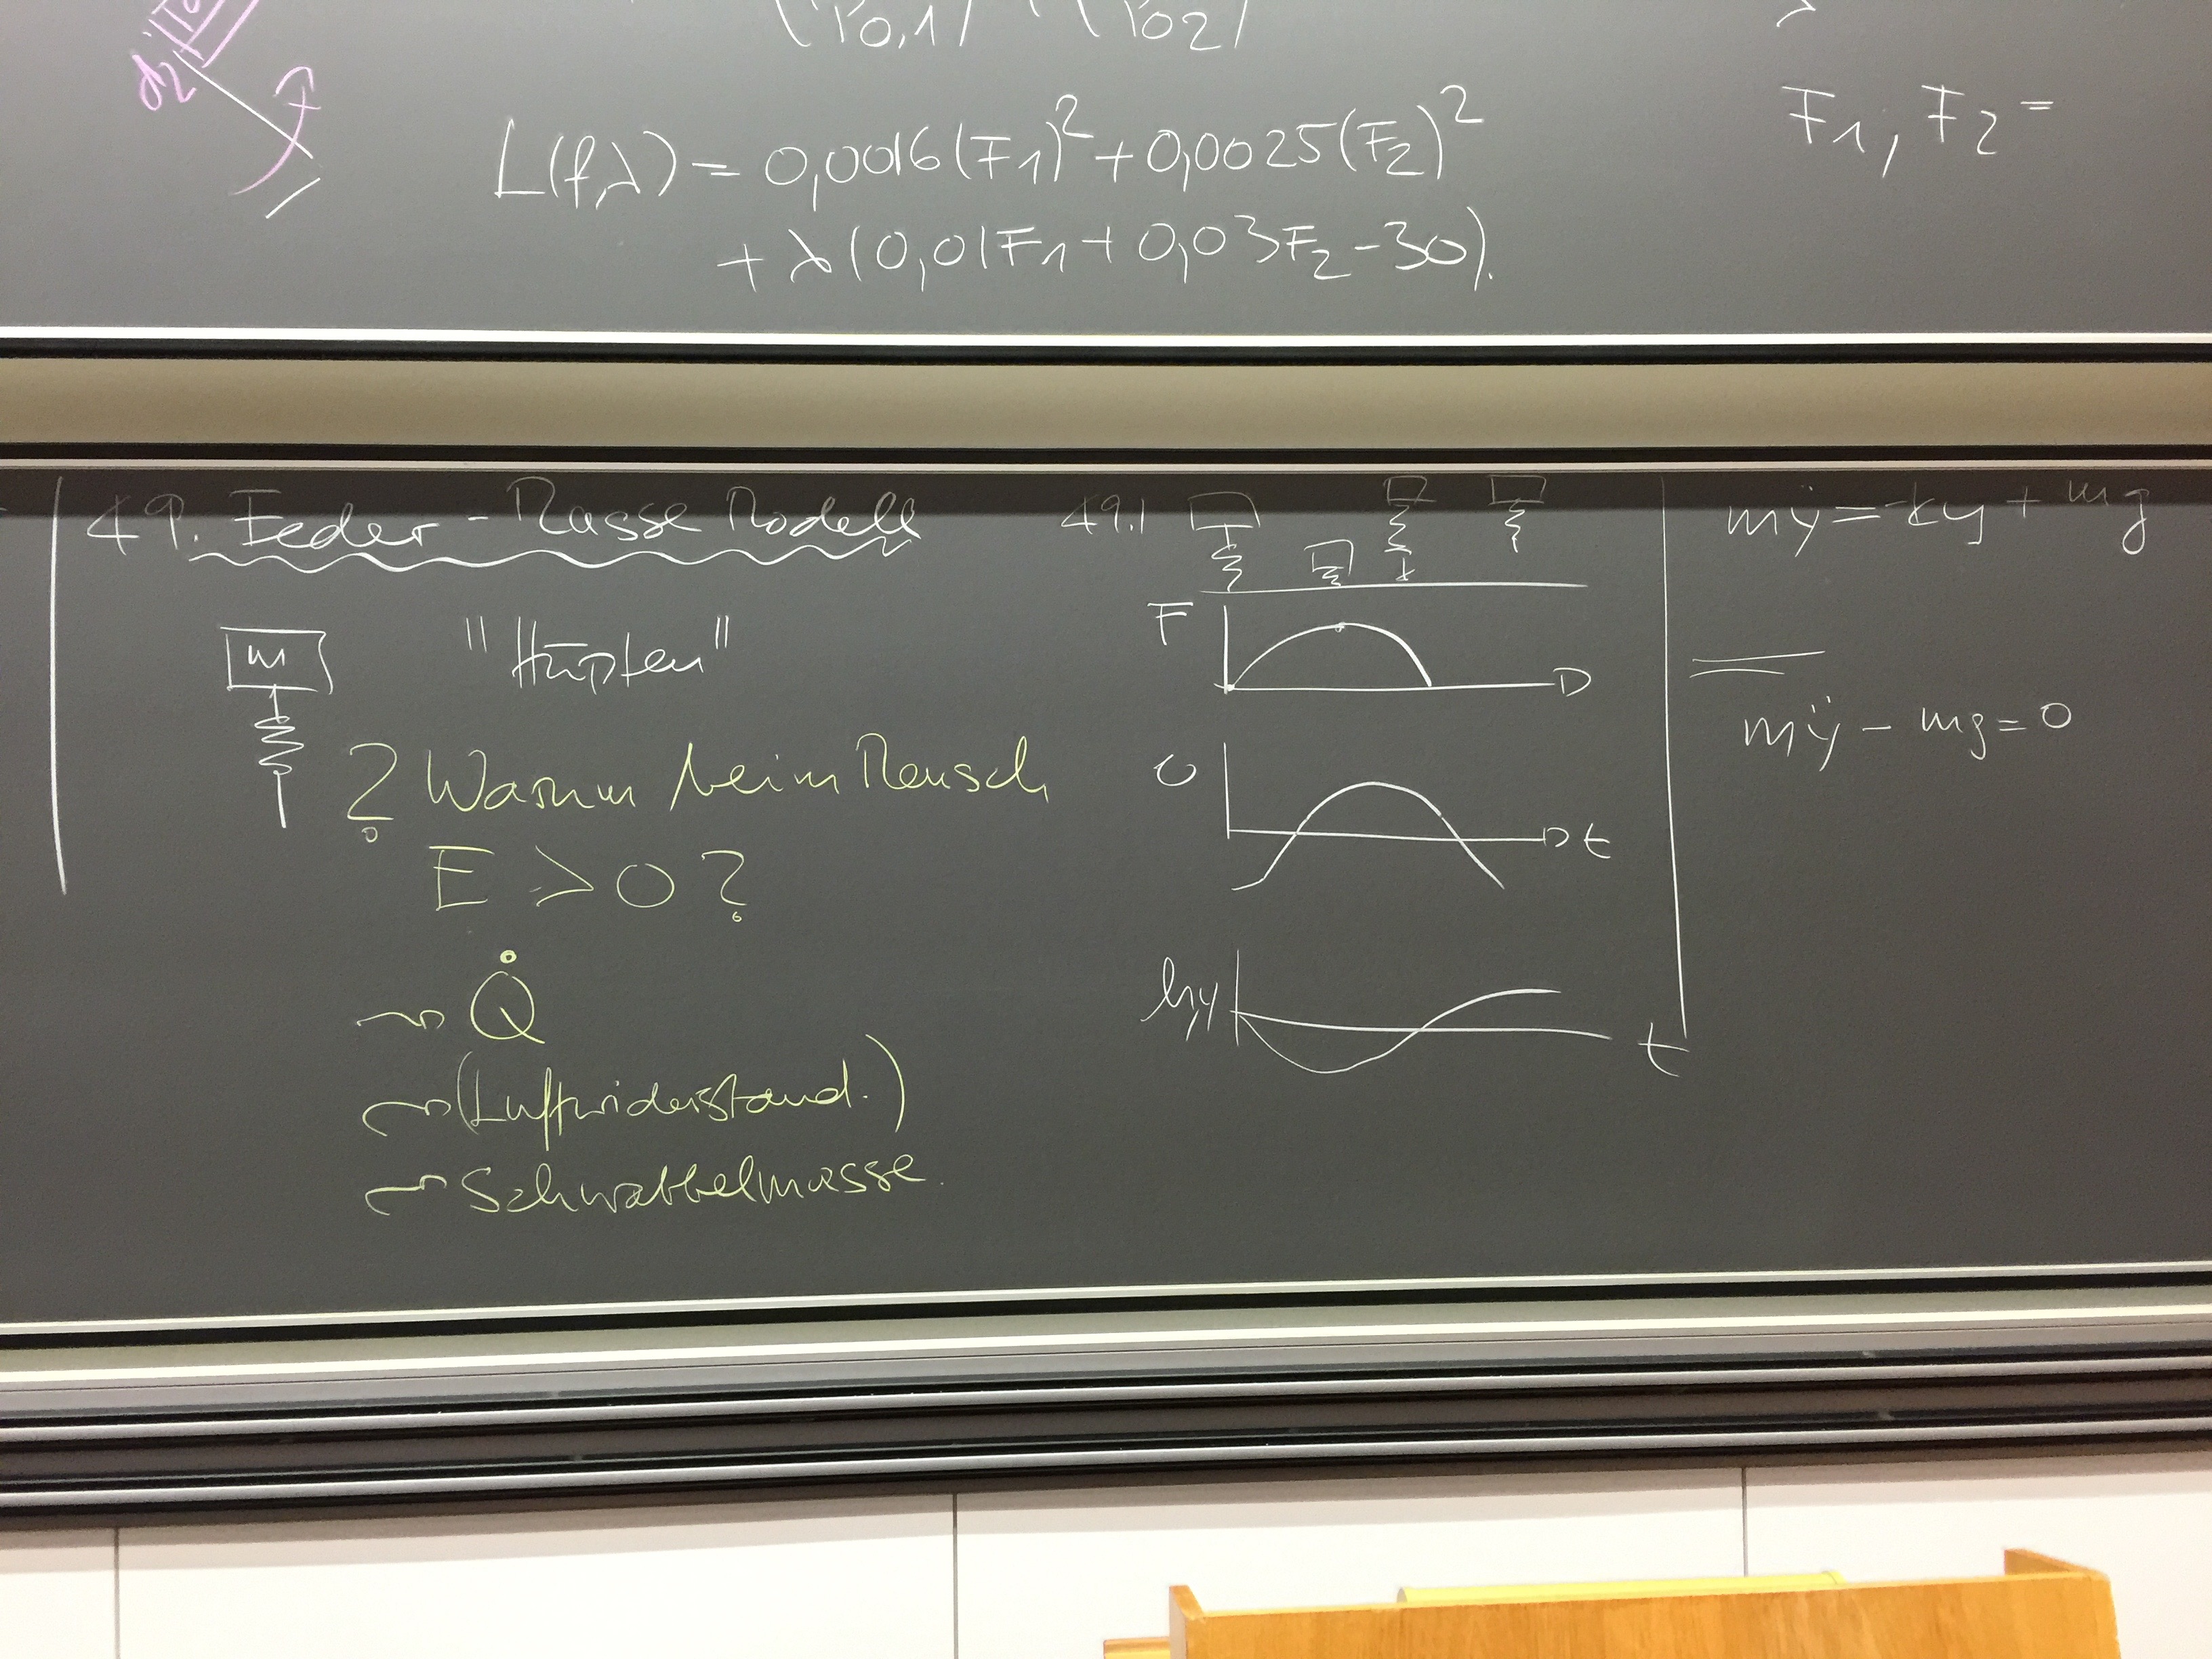 L(f,λ) = 0,0016(F1)² + 0,0025(F2)²
+ λ(0,01F1 + 0,03F2 - 30).
F1, F2 =
49. Feder-Masse Modell
m
"Hüpfen"
? Warum beim Mensch
E > 0 ?
Q̇
(Luftwiderstand.)
Schwabbelmasse.
49.1
F
t
h,y
t
mÿ = -ky + mg
mÿ - mg = 0